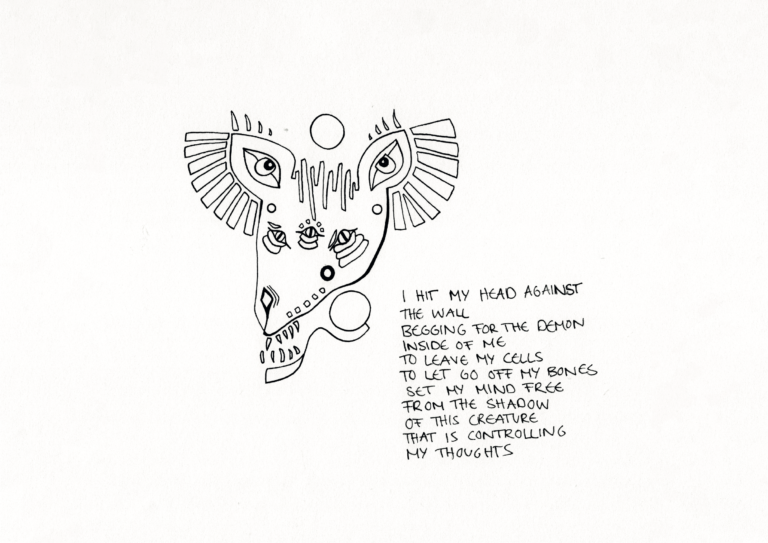 I HIT MY HEAD AGAINST
THE WALL
BEGGING FOR THE DEMON
INSIDE OF ME
TO LEAVE MY CELLS
TO LET GO OFF MY BONES
SET MY MIND FREE
FROM THE SHADOW
OF THIS CREATURE
THAT IS CONTROLLING
MY THOUGHTS